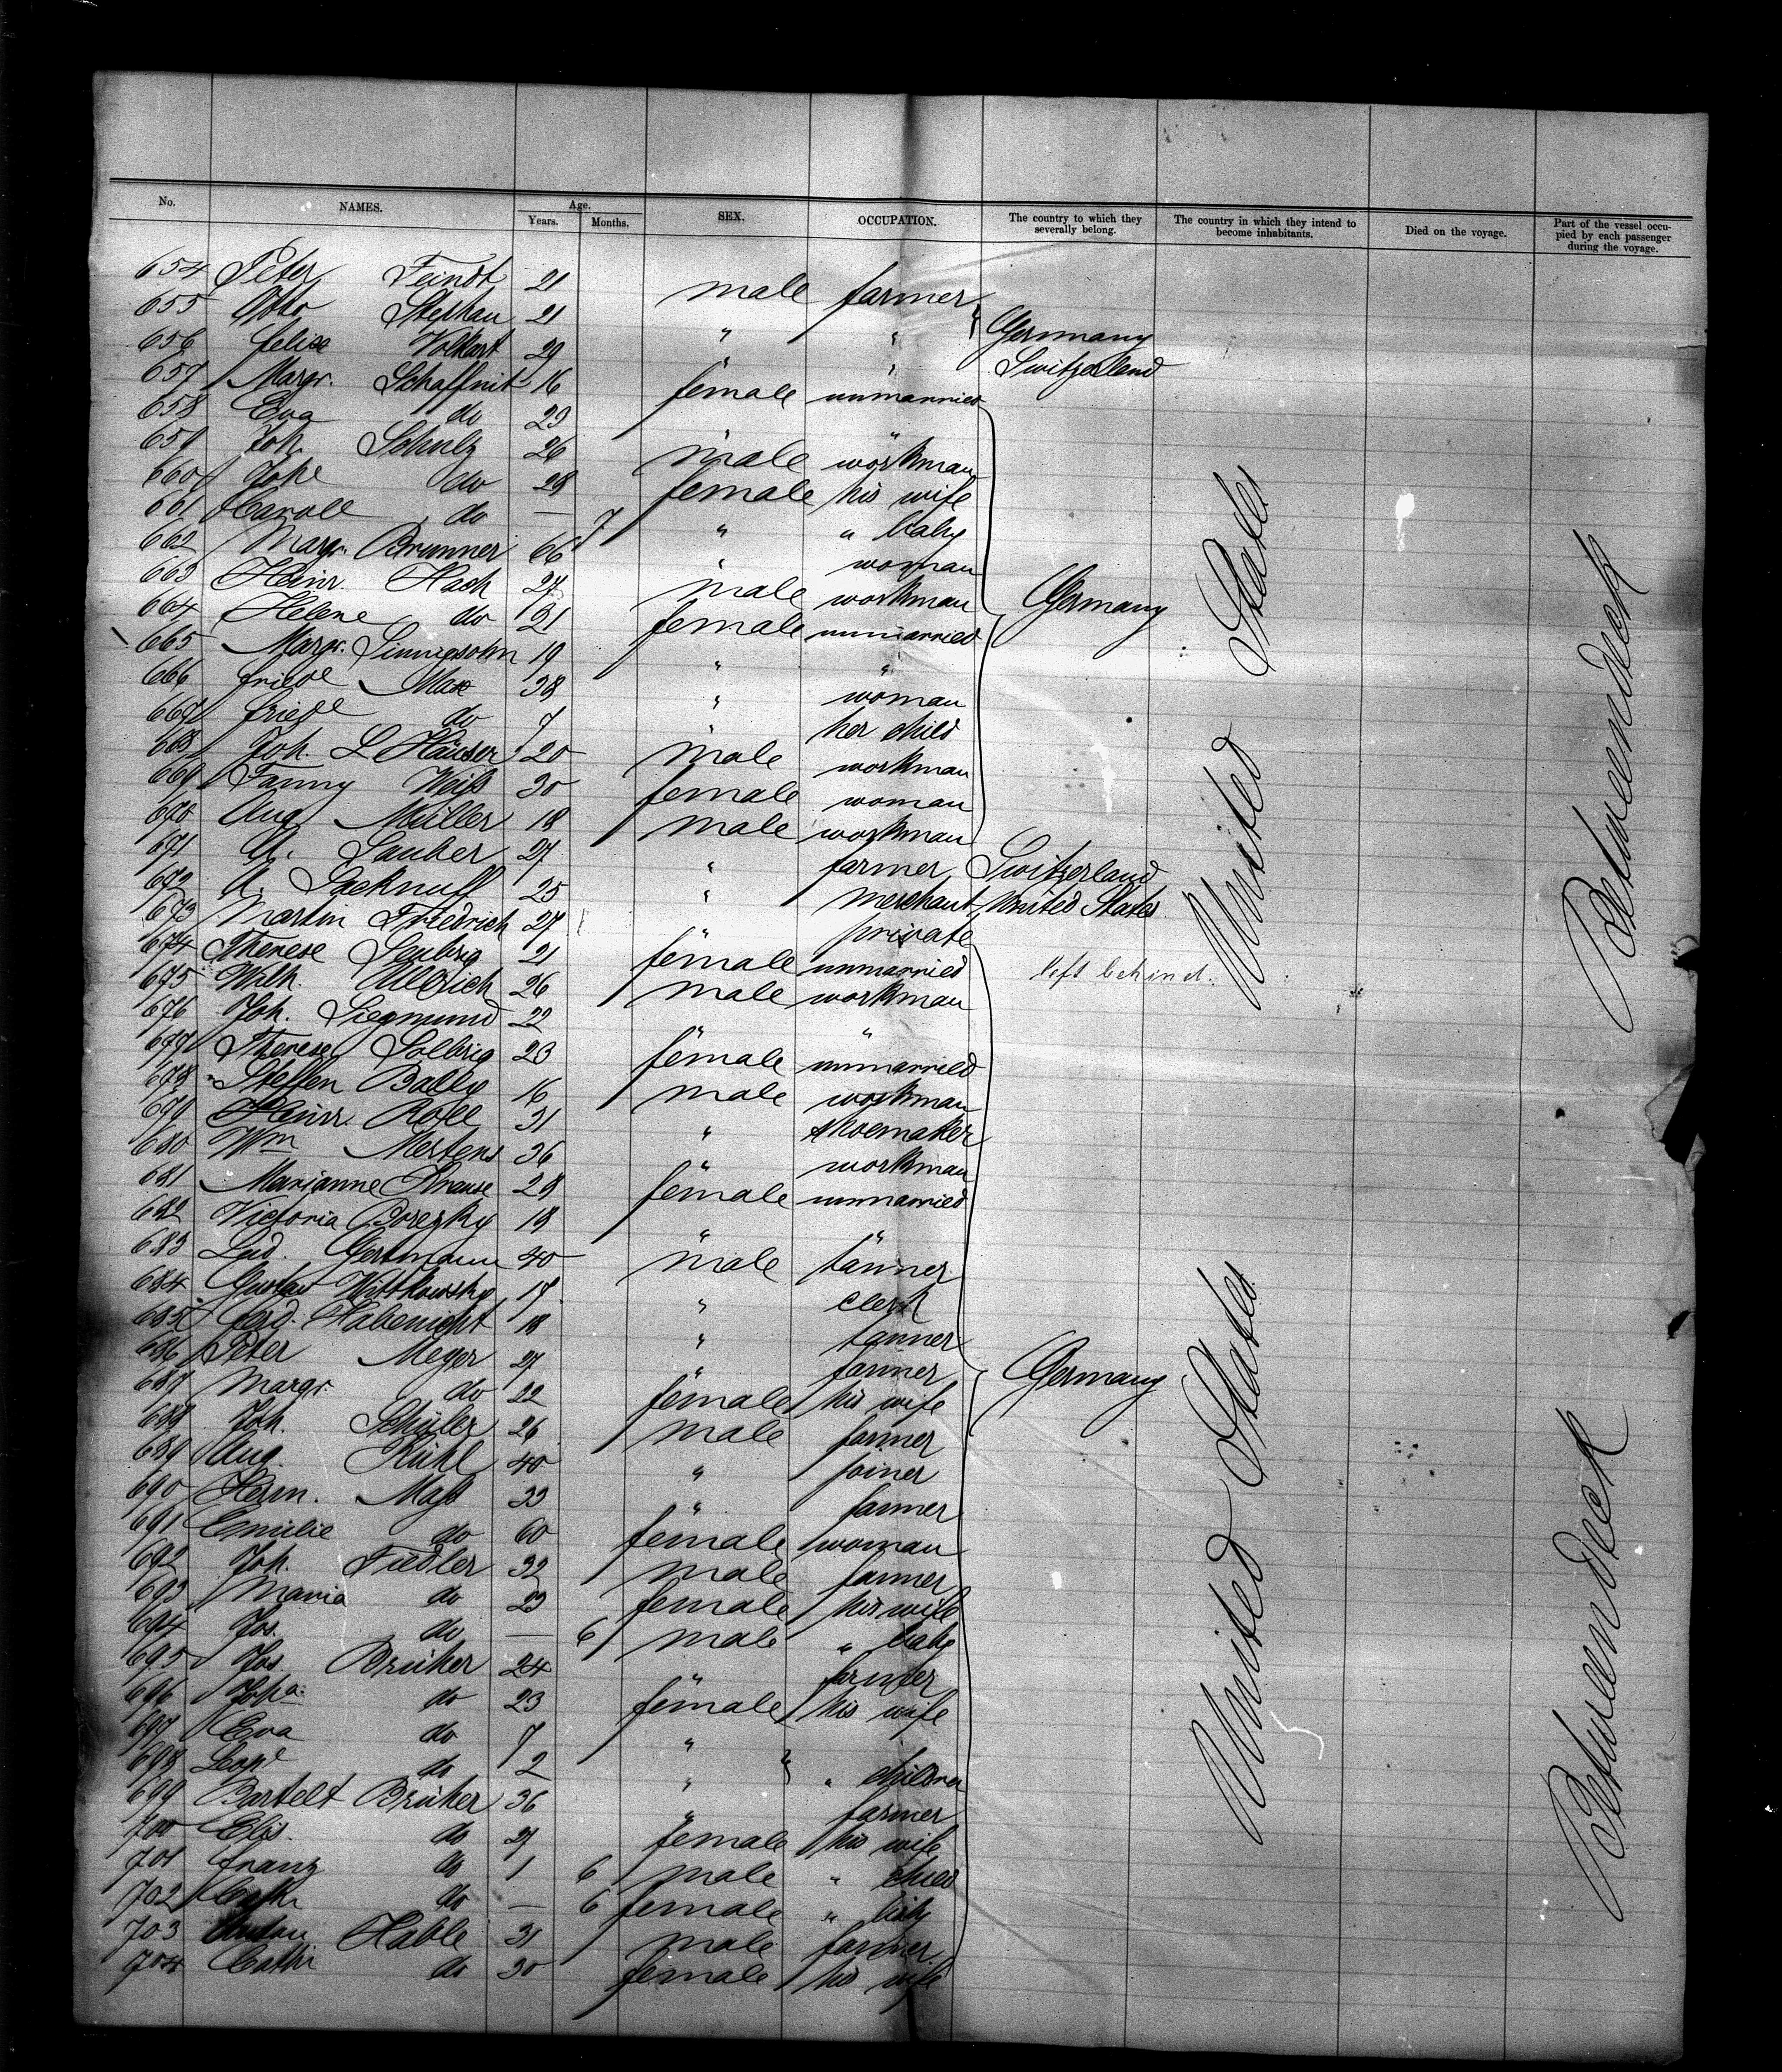 No. NAMES. Age. Years. Months. SEX. OCCUPATION. The country to which they severally belong. The country in which they intend to become inhabitants. Died on the voyage. Part of the vessel occupied by each passenger during the voyage.
654 Peter Feindt 21 male farmer
655 Otto Stephan 21 " " Germany
656 Felix Volkart 29 " " Switzerland
657 Margr. Schaffnit 16 female unmarried
658 Eva do 23 " "
659 Joh. Schulz 26 male workman
660 Johe do 28 female his wife
661 Caroll do — 7 " " baby
662 Margr. Brunner 66 " woman
663 Heinr. Hach 27 male workman Germany
664 Helene do 21 female unmarried
665 Margr. 19 " "
666 Friede Max 38 " woman
667 Friede do 7 " her child
668 Joh. L Häuser 20 male workman
669 Fanny Weiß 30 female woman
670 Aug. Müller 18 male workman
671 Lauber 27 " farmer Switzerland
672 A. 25 " merchant United States
673 Martin Friedrich 27 " private
674 Therese 21 female unmarried left behind.
675 Wilh. Ullrich 26 male workman
676 Joh. Siegmund 22 " "
677 Therese Solbrig 23 female unmarried
678 Steffen Bally 16 male workman
679 Heinr. 31 " shoemaker
680 Wm Mertens 36 " workman
681 Marianne Krause 28 female unmarried
682 Victoria 18 " "
683 Lud. Gertmann 40 male tanner
684 Gustav Wittkowsky 17 " clerk
685 Ferd. Habenicht 18 " tanner
686 Peter Meyer 27 " farmer Germany
687 Margr. do 22 female his wife
688 Joh. Schüler 26 male farmer
689 Aug. Kühl 40 " joiner
690 Herm. Maß 33 " farmer
691 Emilie do 60 female woman
692 Joh. Fiedler 32 male farmer
693 Maria do 23 female his wife
694 Jos. do — 6 male " baby
695 Jos. Brüker 24 " farmer
696 Joha. do 23 female his wife
697 Eva do 7 "
698 do 2 " " children
699 Bartelt Brüker 36 " farmer
700 Elis. do 27 female his wife
701 Franz do 1 6 male " child
702 do — 6 female " baby
703 Anton Hable 31 male farmer
704 Cathi do 30 female his wife
United States
United States
Betweendeck
Betweendeck